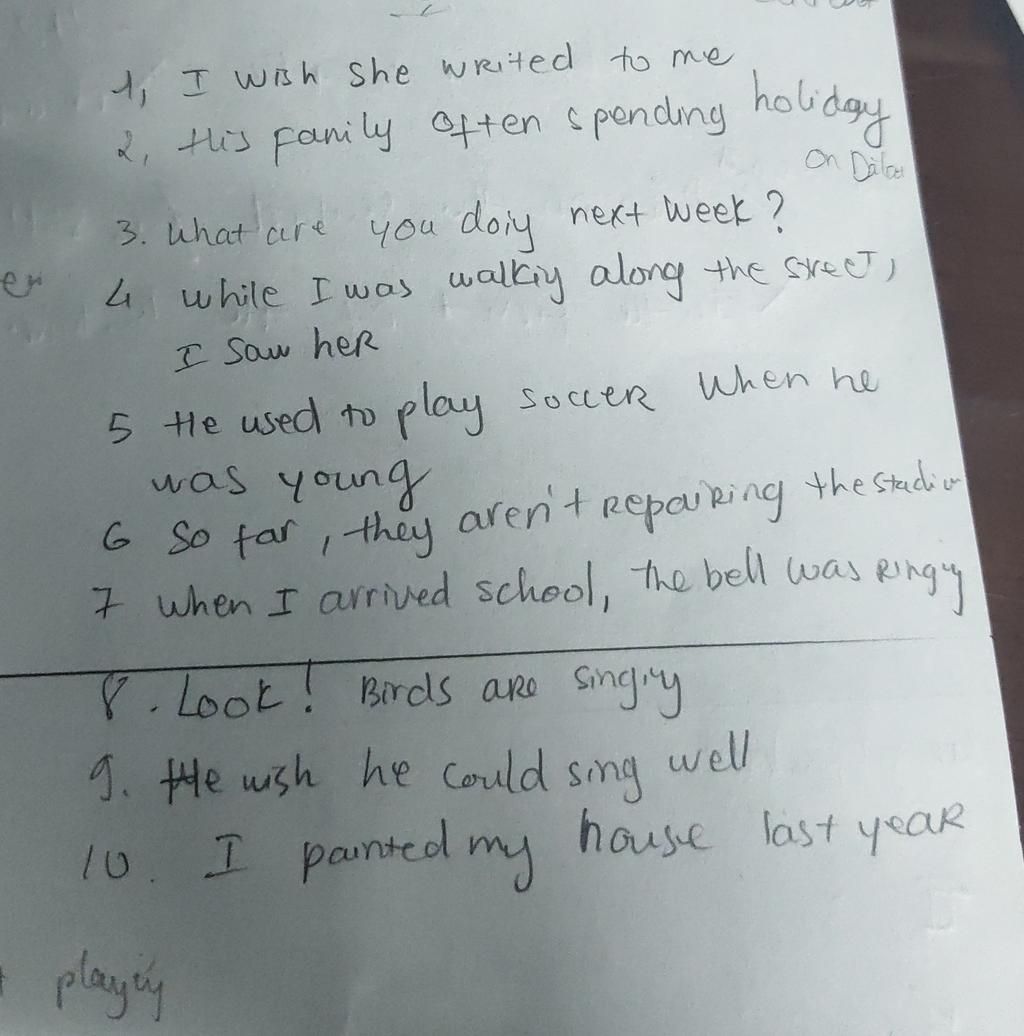 1, I wish she writed to me
2, His family often spending holiday
on
3. What are you doing next week?
er
4 while I was walking along the street,
I saw her
5 He used to play soccer when he
was young
6 So far, they aren't repairing the stadium
7 when I arrived school, the bell was Ringing
8. Look! Birds are singing
9. He wish he could sing well
10. I painted my house last year
playing